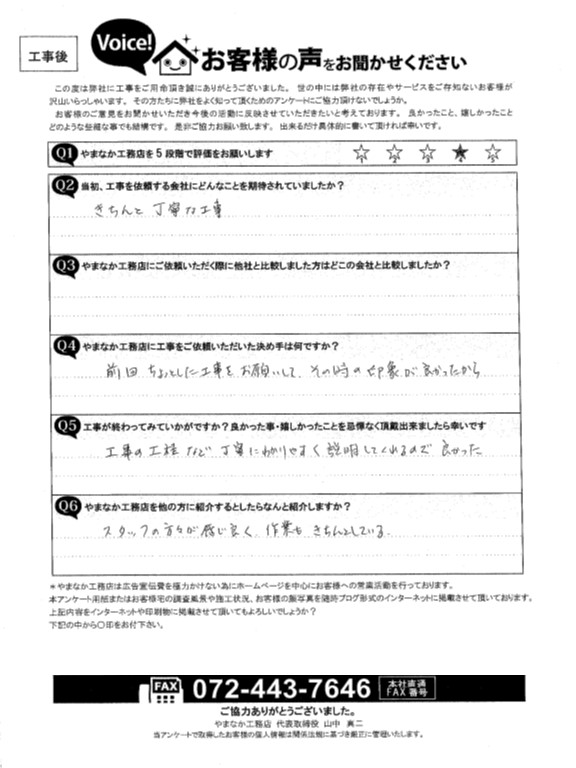 工事後
Voice!
お客様の声をお聞かせください
この度は弊社に工事をご用命頂き誠にありがとうございました。 世の中には弊社の存在やサービスをご存知ないお客様が
沢山いらっしゃいます。 その方たちに弊社をよく知って頂くためのアンケートにご協力頂けないでしょうか。
お客様のご意見をお聞かせいただき今後の活動に反映させていただきたいと考えております。 良かったこと、嬉しかったこと
どのような些細な事でも結構です。 是非ご協力お願い致します。 出来るだけ具体的に書いて頂ければ幸いです。
Q1 やまなか工務店を5段階で評価をお願いします ☆ ☆ ☆ ★ ☆
1 2 3 4 5
Q2 当初、工事を依頼する会社にどんなことを期待されていましたか？
きちんと 丁寧な工事
Q3 やまなか工務店にご依頼いただく際に他社と比較しました方はどこの会社と比較しましたか？
Q4 やまなか工務店に工事をご依頼いただいた決め手は何ですか？
前回 ちょっとした工事をお願いして、その時の印象が良かったから
Q5 工事が終わってみていかがですか？良かった事・嬉しかったことを忌憚なく頂戴出来ましたら幸いです
工事の工程など 丁寧にわかりやすく説明してくれるので 良かった
Q6 やまなか工務店を他の方に紹介するとしたらなんと紹介しますか？
スタッフの方々が感じ良く、作業も きちんとしている。
＊やまなか工務店は広告宣伝費を極力かけない為にホームページを中心にお客様への営業活動を行っております。
本アンケート用紙またはお客様宅の調査風景や施工状況、お客様の顔写真を随時ブログ形式のインターネットに掲載させて頂いております。
上記内容をインターネットや印刷物に掲載させて頂いてもよろしいでしょうか？
下記の中から〇印をお付下さい。
FAX 072-443-7646 本社直通
FAX番号
ご協力ありがとうございました。
やまなか工務店 代表取締役 山中 真二
当アンケートで取得したお客様の個人情報は関係法規に基づき厳正に管理いたします。